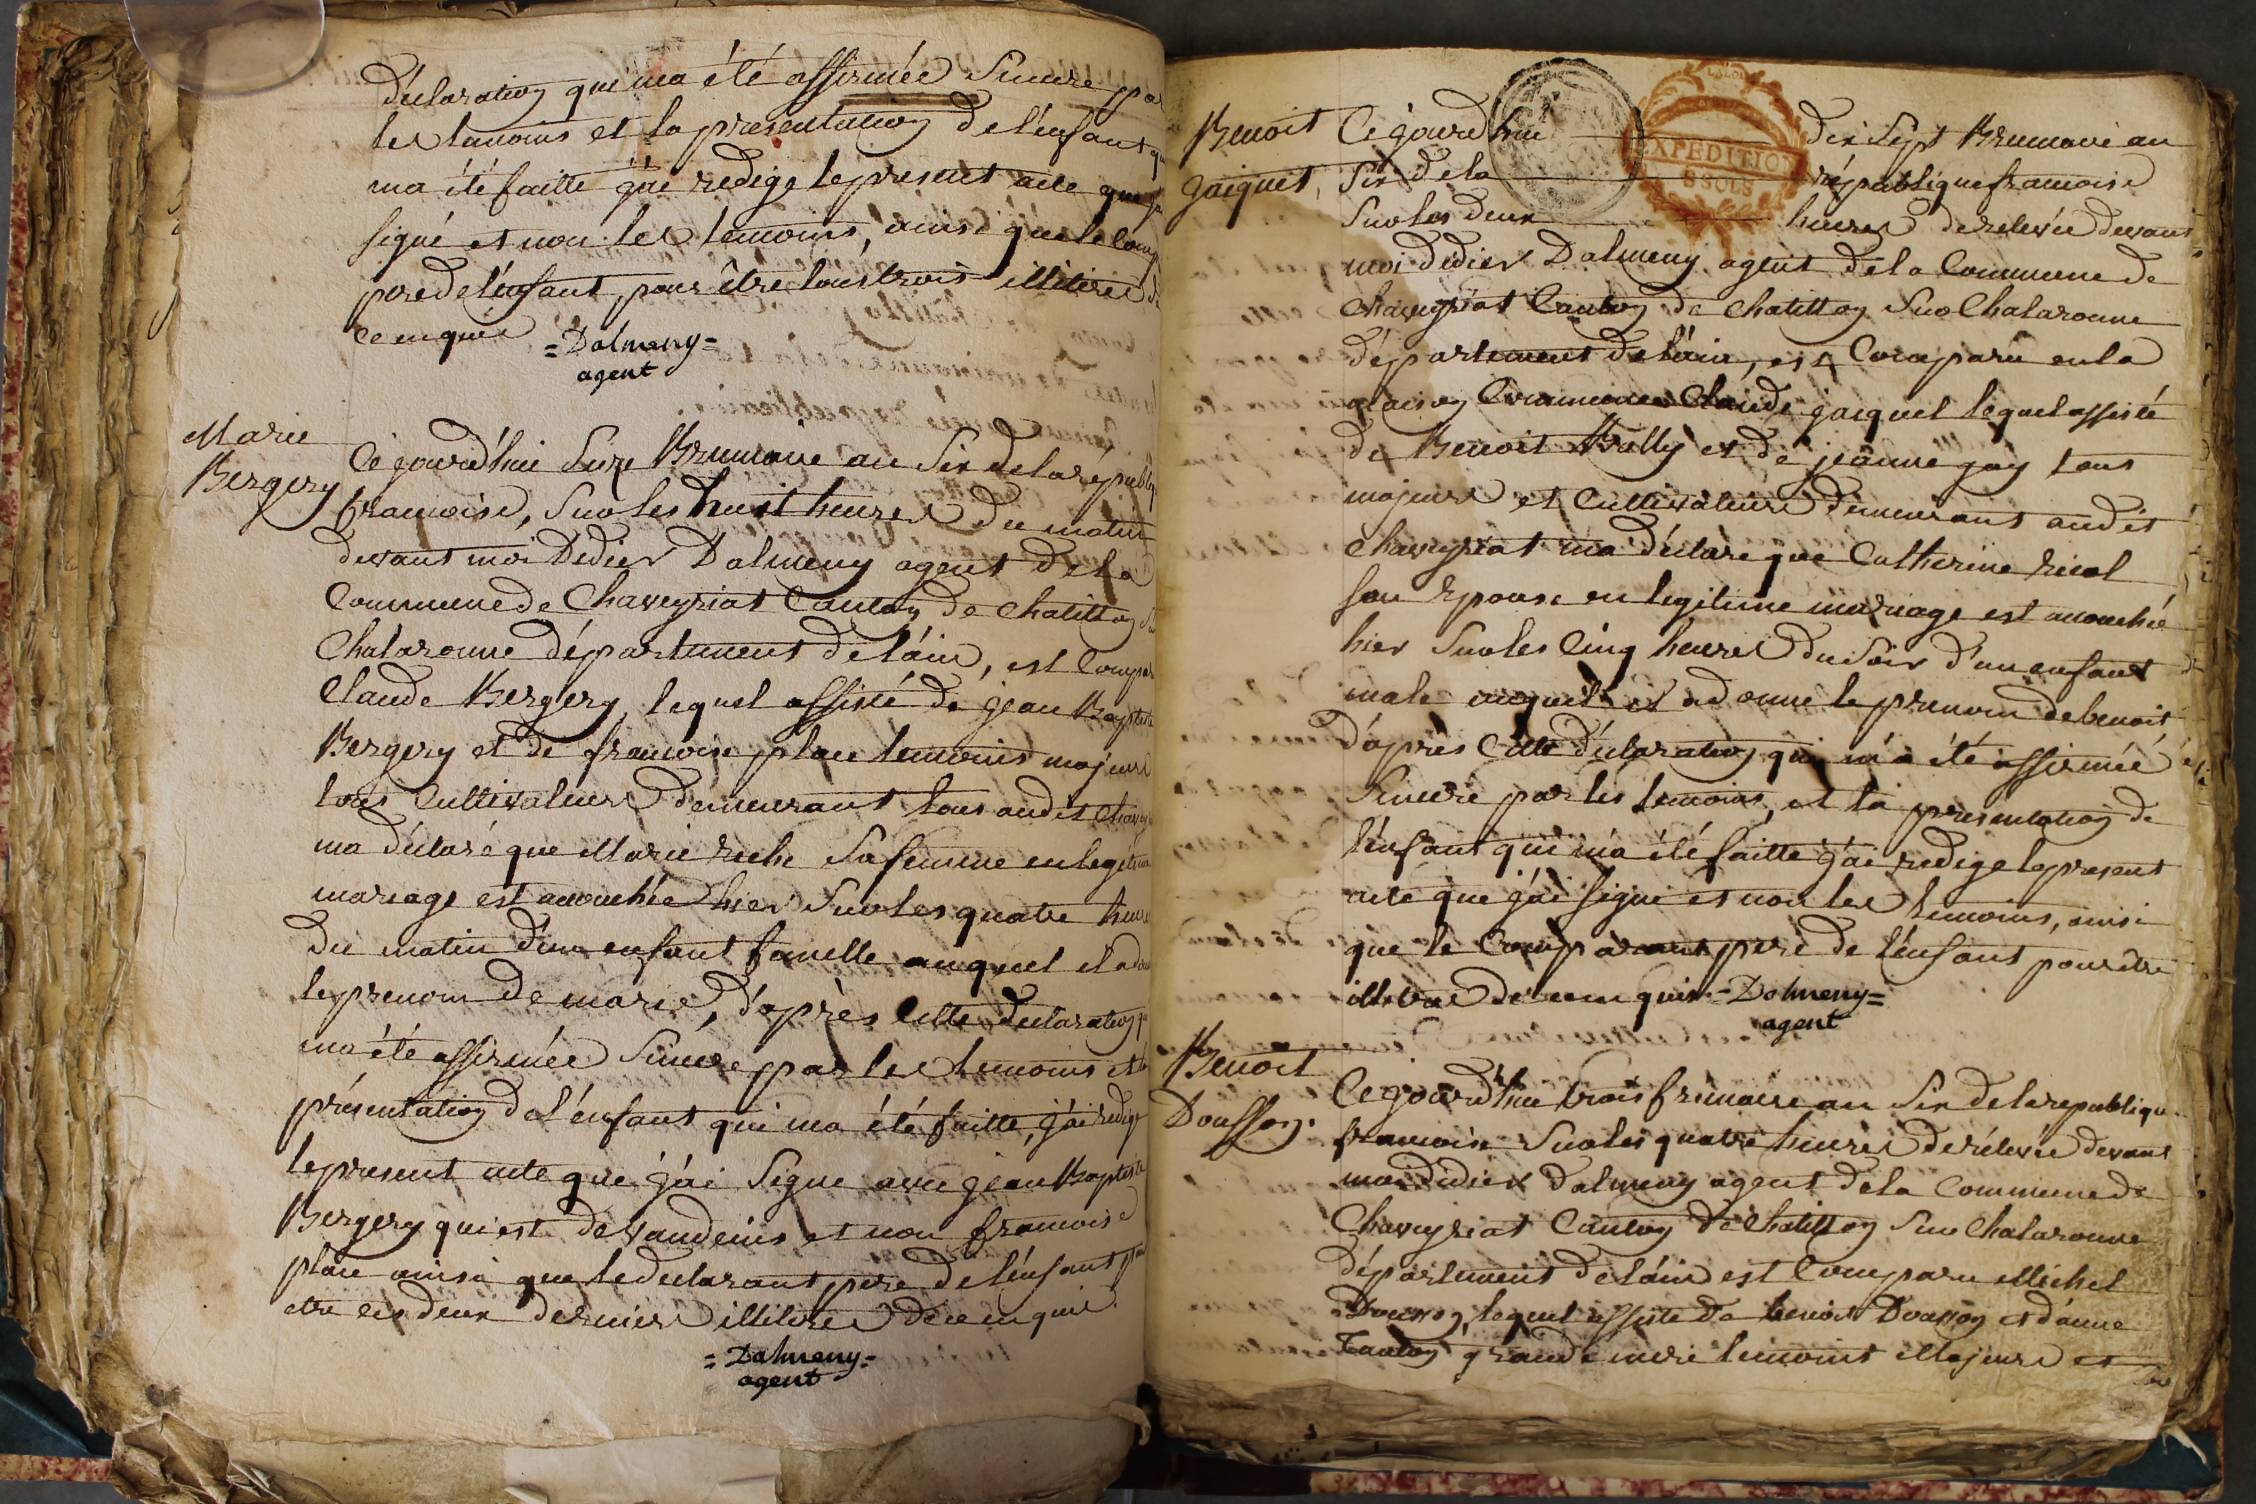 déclaration qui ma été affirmée Sincere par
les temoins et la presentation de l'enfant qui
ma été faitte j'ai redigé le present acte que j'ai
signé et non les temoins, ainsi que le comp
pere de l'enfant pour être tous trois illitirés de
ce enquis =Dalmeny=
agent
Marie
Bergery
Cejourd'hui Seize Brumaire an Six de la républiq
francoise, Sur les huit heures du matin
devant moi Didier Dalmeny agent de la
Commune de Chaveyriat Canton de Chatillon Sur
Chalaronne département de l'ain, est Compar
Claude Bergery lequel assisté de jean Baptiste
Bergery et de francoise place temoins majeurs
tous Cultivateurs demeurant tous audit Chavey
ma déclaré que Marie riche Sa femme en legitime
mariage est accouchée hier Sur les quatre heures
du matin d'un enfant femelle auquel il a donné
le prenom de marie, d'après cette declaration qui
ma été affirmée Sincere par les temoins et la
présentation de l'enfant qui ma été faitte, j'ai redigé
le present acte que j'ai Signé avec jean Baptiste
Bergery qui est de vandeins et non francoise
place ainsi que le declarant pere de l'enfant pour
etre ces deux derniers illitirés de ce enquis.
=Dalmeny=
agent
Benoit
jacquet,
Cejourd'hui dix Sept Brumaire an
Six de la république francoise
Sur les deux heures de relevée devant
EXPEDITION
8 SOLS
moi didier Dalmeny agent de la Commune de
Chaveyriat Canton de Chatillon Sur Chalaronne
département de l'ain, est Comparu en la
maison Commune Claude jacquet lequel assisté
de Benoit Brally et de jeanne gay tous
majeurs et Cultivateurs demeurant audit
Chaveyriat ma déclaré que Catherine ricol
Son Epouse en legitime mariage est accouchée
hier Sur les Cinq heures du Soir d'un enfant
male auquel il a donné le prenom de benoit
d'après Cette déclaration qui m'a été affirmée
Sincere par les temoins, et la presentation de
l'enfant qui m'a été faitte j'ai redigé le present
acte que j'ai signé et non les temoins, ainsi
que le Comparant pere de l'enfant pour être
illitirés de ce enquis. =Dalmeny=
agent
Benoit
Dousson.
Cejourd'hui trois frimaire an Six de la republique
francoise Sur les quatre heures de rélevée devant
moi didier Dalmeny agent de la Commune de
Chaveyriat Canton de Chatillon Sur Chalaronne
département de l'ain est Comparu Michel
Dousson, lequel assisté de benoit Dousson et d'anne
tanton grande mere temoins Majeurs et